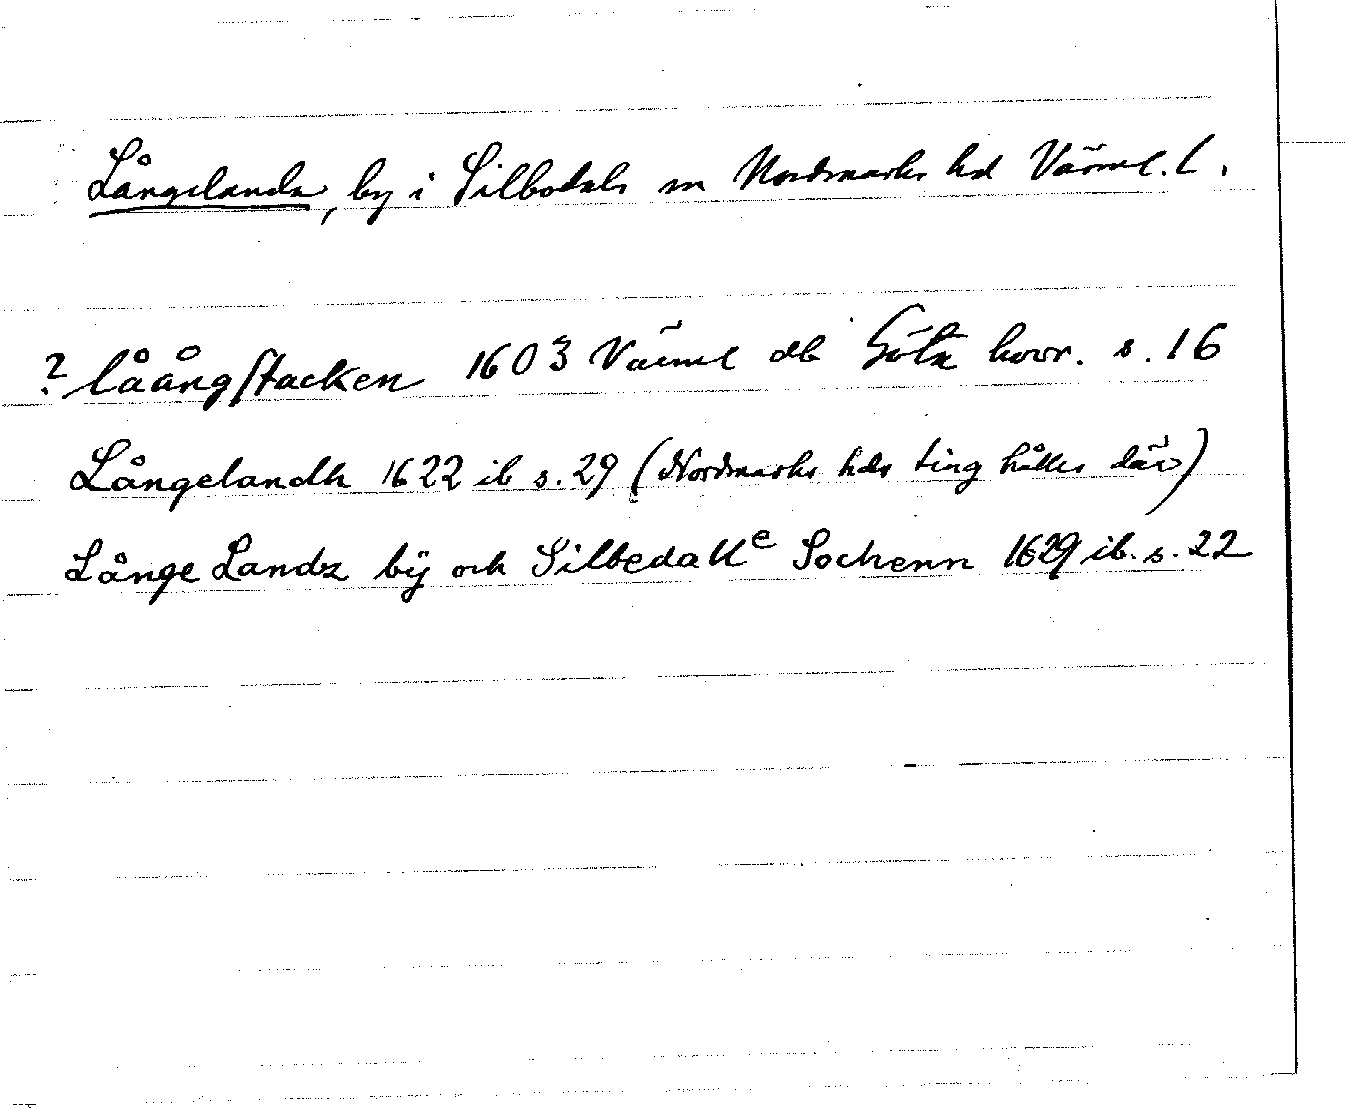 Långelanda, by i Silbodals sn Nordmarks hd Värml. l.
? låångstacken 1603 Värml db Göta hovr. s. 16
Långelandh 1622 ib s. 29 (Nordmarks hds ting hålles där)
Långe Landz bÿ och Silbedalle Sochenn 1629 ib. s. 22